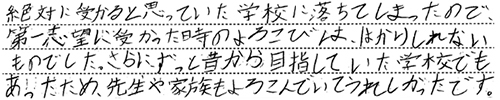 絶対に受かると思っていた学校に落ちてしまったので、
第一志望に受かった時のよろこびは、はかりしれない
ものでした。さらにずっと昔から目指していた学校でも
あったため、先生や家族もよろこんでいてうれしかったです。